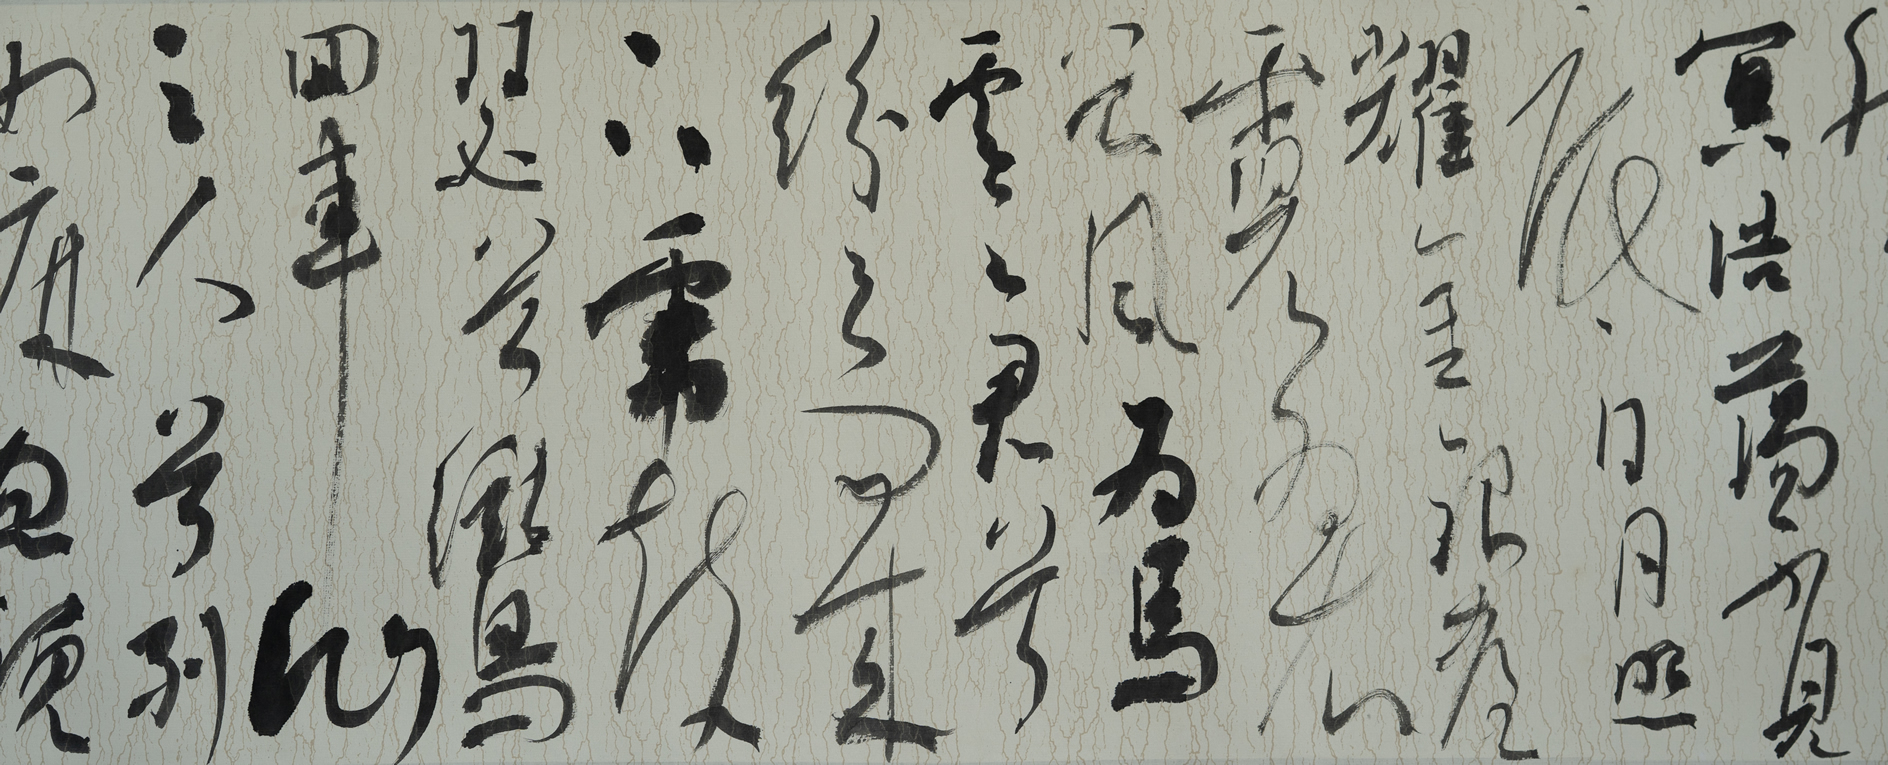 冥浩蕩不見
底日月照
耀金銀臺
霓為衣
兮風為馬
雲之君兮
紛紛而來
下虎鼓
瑟兮鸞
回車仙
之人兮列
如麻忽魂